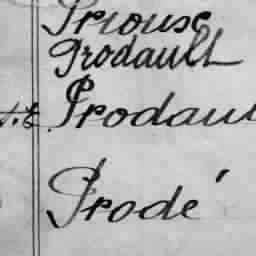 Priouse
Prodault
Prodau
Prodé